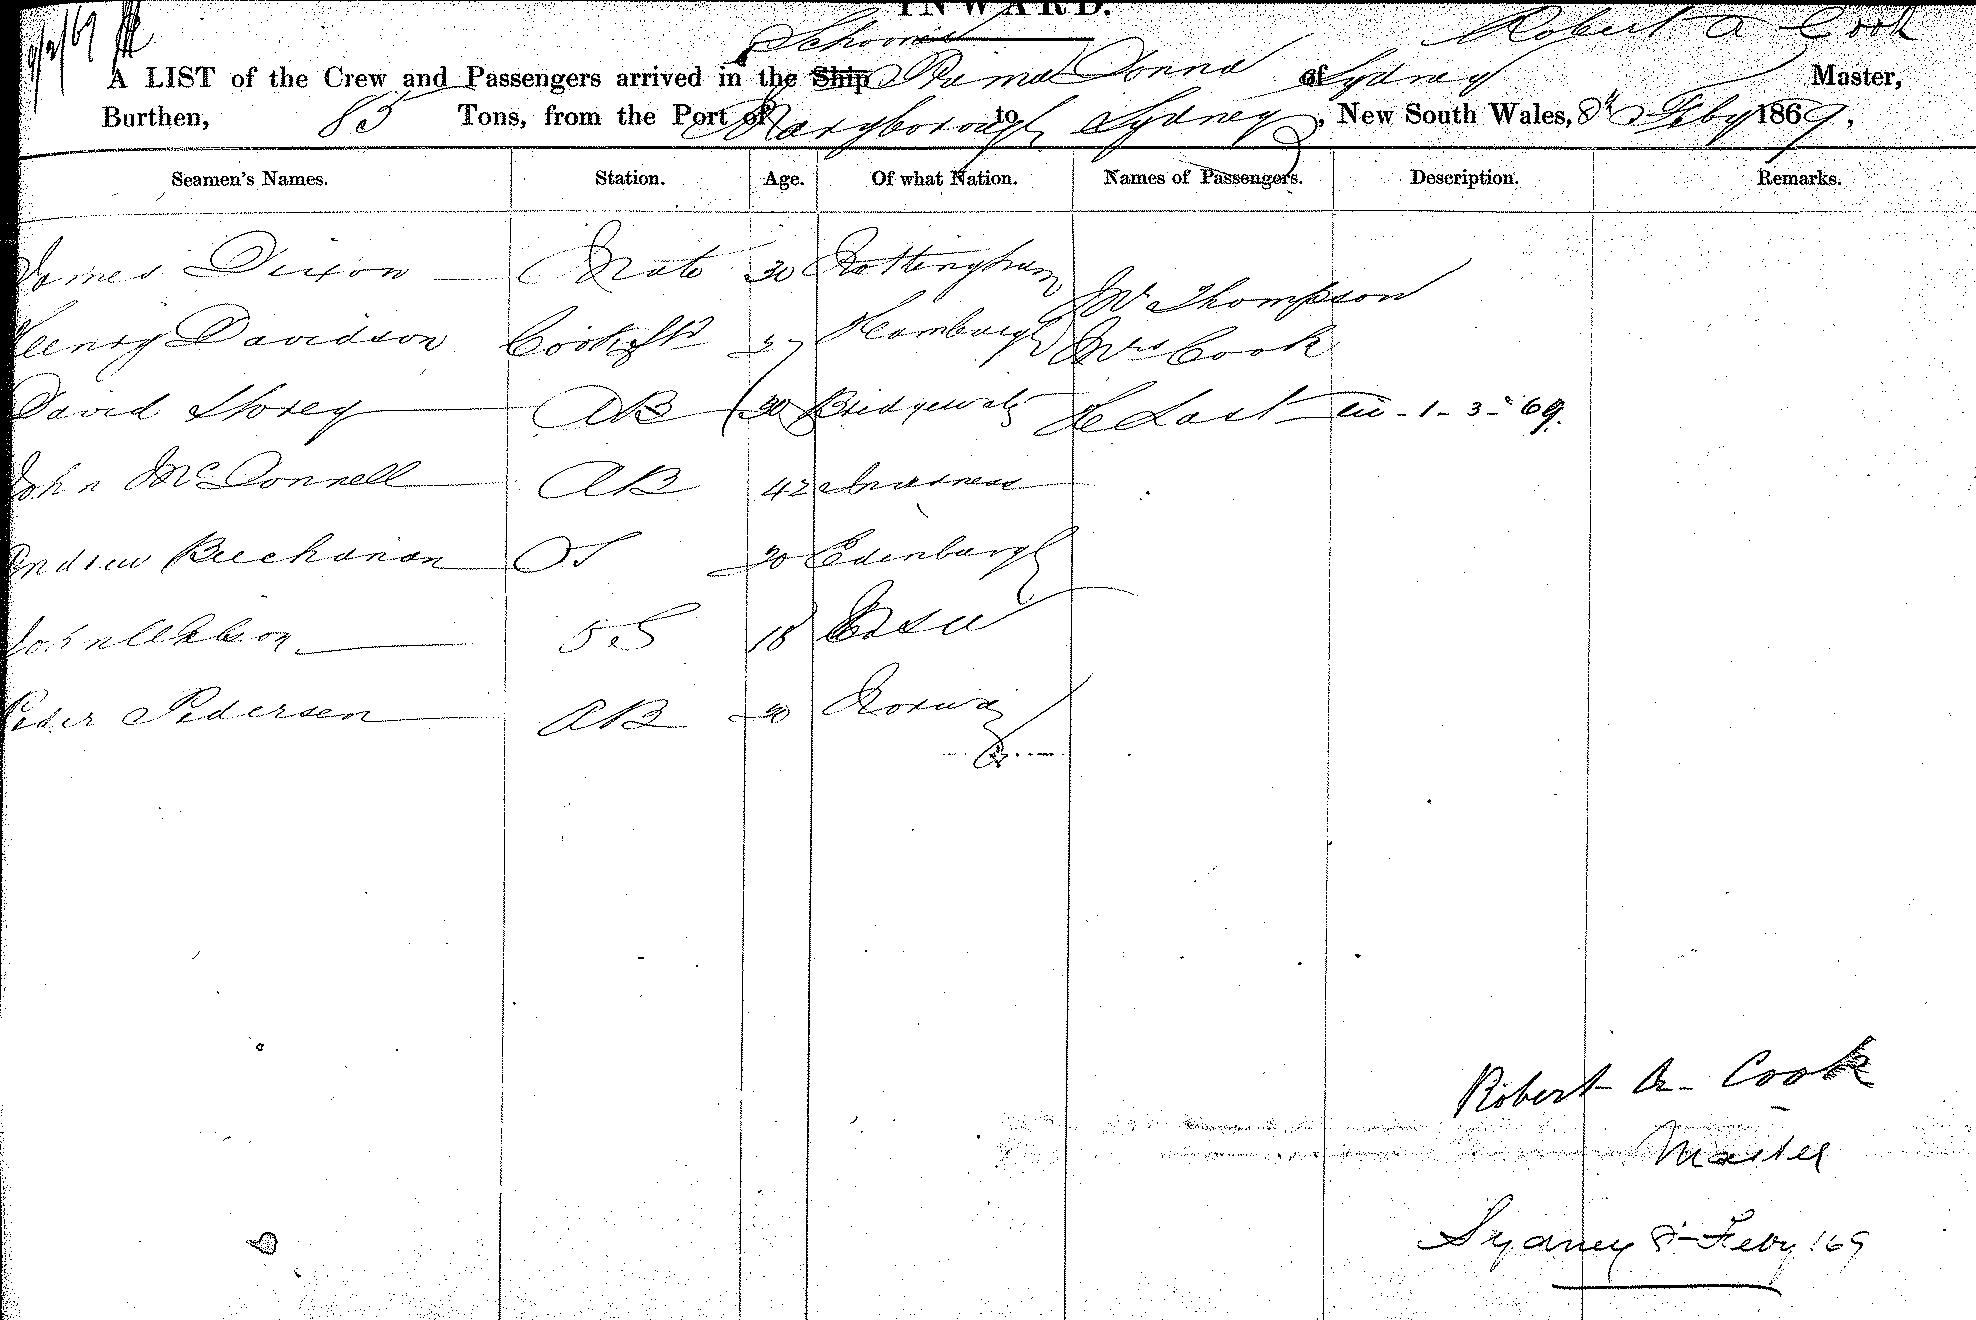 INWARD.
8/2/69
Schooner Robert A Cook
A LIST of the Crew and Passengers arrived in the Ship Prima Donna of Sydney Master,
Burthen, 85 Tons, from the Port of Maryborough to Sydney, New South Wales, 8th Feby 1869,
Seamen's Names. Station. Age. Of what Nation. Names of Passengers. Description. Remarks.
James Dixon Mate 30 Nottingham
W Thompson
Henry Davidson Cook & Std 27 Hamburgh Mrs Cook
David Storey AB 30 Bridgewater H Last 1-3-"69.
John McDonnell AB 42 Inverness
Andrew Buchanan OS 20 Edinburgh
John 18
Peder Pedersen AB 30 Norway
Robert A Cook
Master
Sydney 8 Feby /69